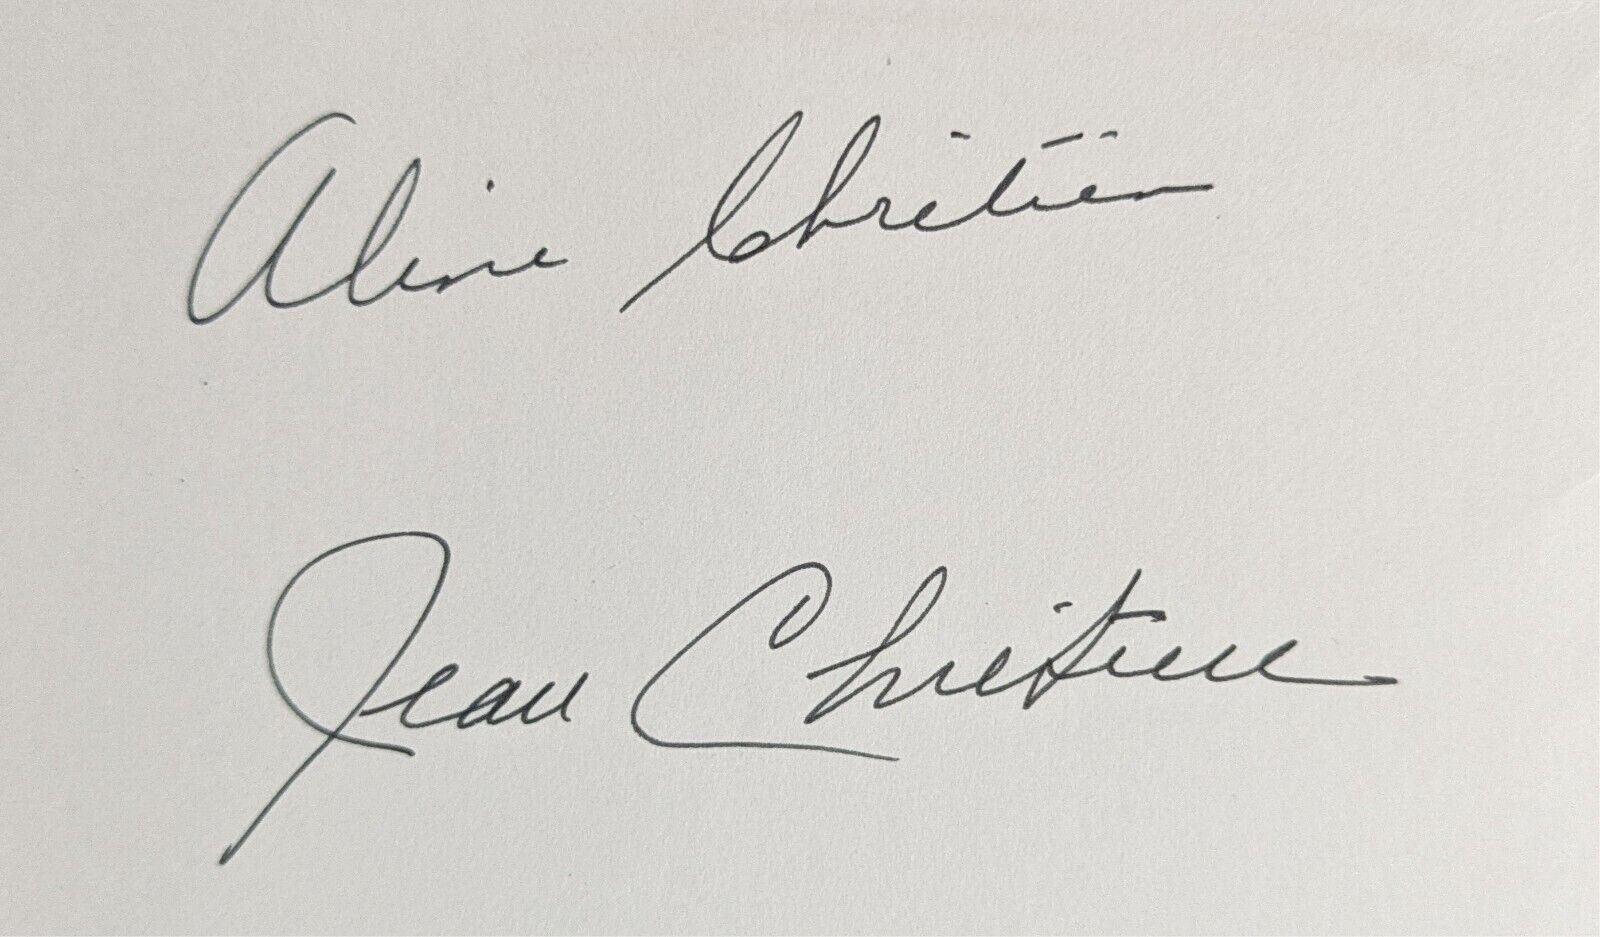 Aline Chrétien
Jean Chrétien